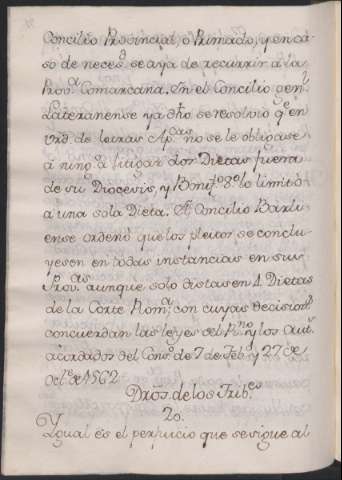 Concilio Provincial, o Primado, y en cà-
so de neces.d se aya de recurrir á la
Prov.a Comarcana. En el Concilio gen.l
Lateranense ya dho se resolvió q.e en
vrd. de letras Ap.cas no se le obligase
á ning.o a litigar dos Dietas fuera
de su Diocesis, y Bonif.o 8.o lo limitò
a una sola Dieta. El Concilio Basili-
ense ordenó que los pleitos se conclu-
yesen en todas instancias en sus
Prov.as aunque solo distasen 4 Dietas
de la Corte Rom.a con cuyas decision.s
concuerdan las leyes del R.no y los Aut.s
acordados del Cons.o de 7 de Feb.o y 27 de
Oct.e de 1562
Dros. de los Trib.es
20.
Ygual es el perjuicio que se sigue al